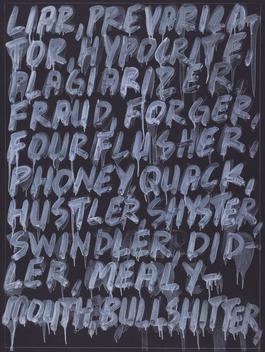 LIAR, PREVARICA-
TOR, HYPOCRITE,
PLAGIARIZER,
FRAUD, FORGER,
FOURFLUSHER,
PHONEY QUACK,
HUSTLER SHYSTER,
SWINDLER, DID-
LER, MEALY-
MOUTH, BULLSHITTER,